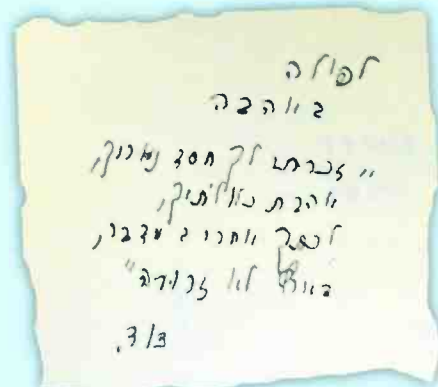 לפולה
באהבה
"זכרתי לך חסד נעוריך,
אהבת כלולתיך,
לכתך אחרי במדבר,
בארץ לא זרועה"
דוד.